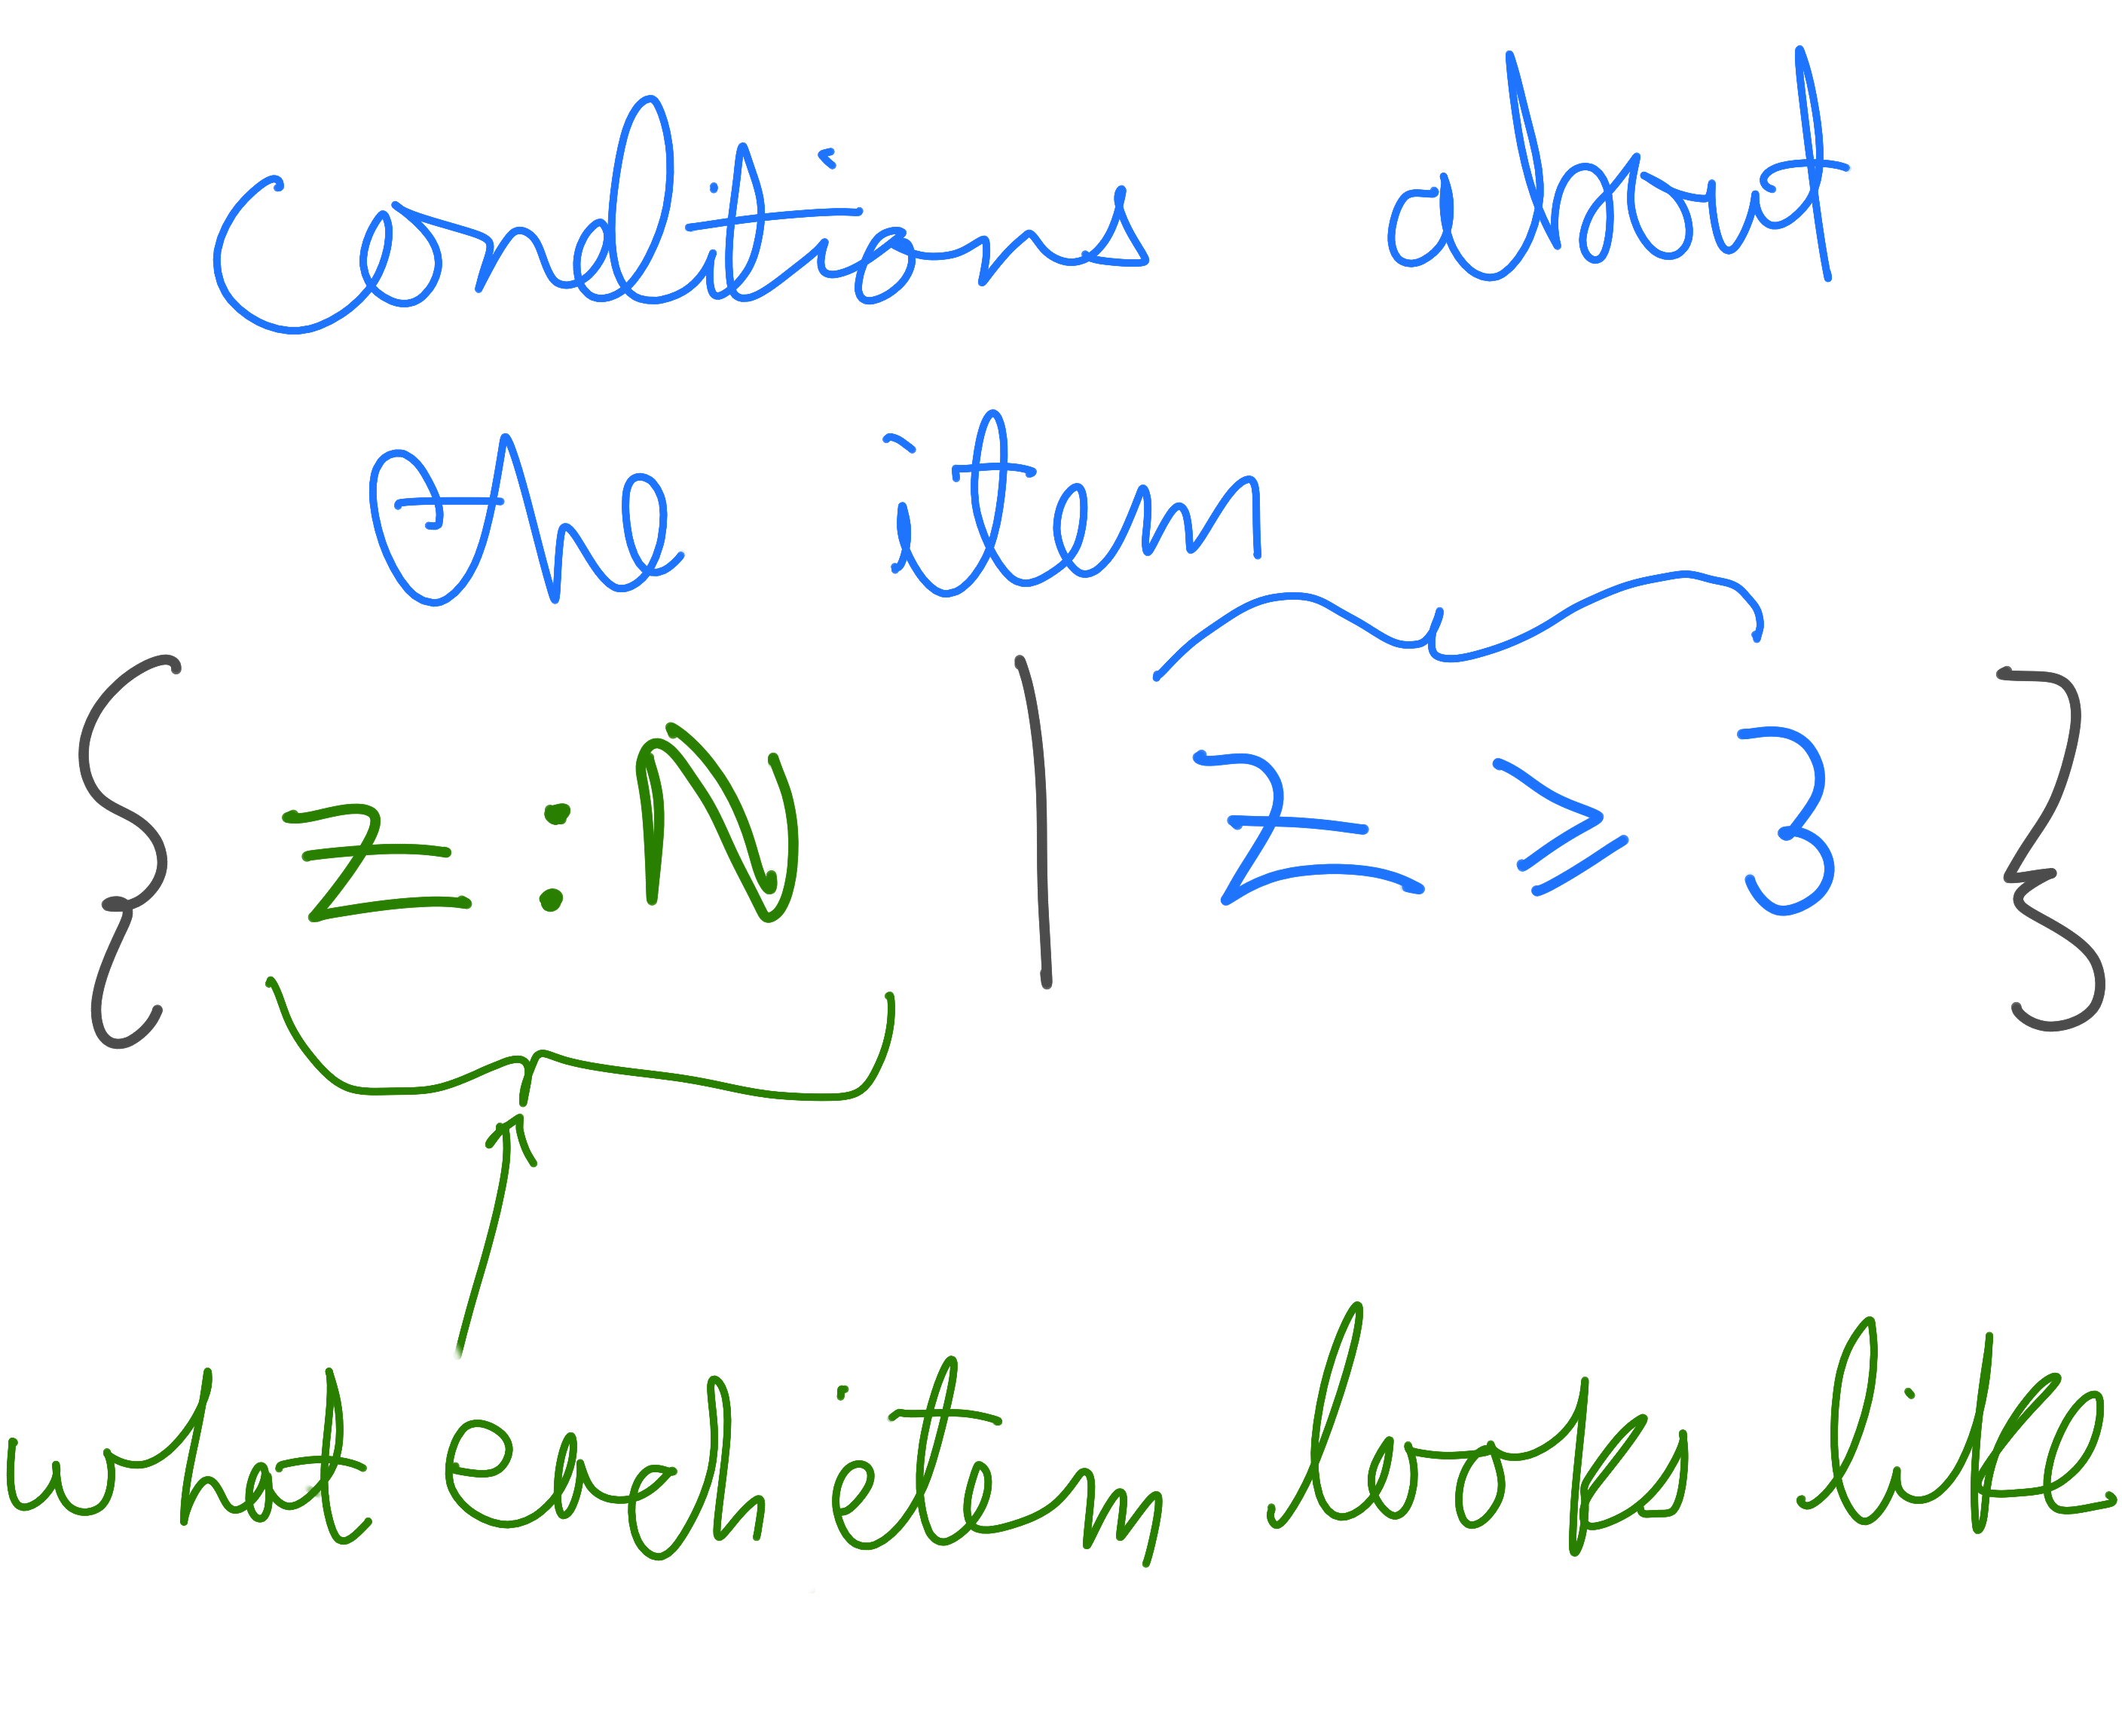 conditions about
the item
{ z : ℕ | z ⩾ 3 }
what each item looks like